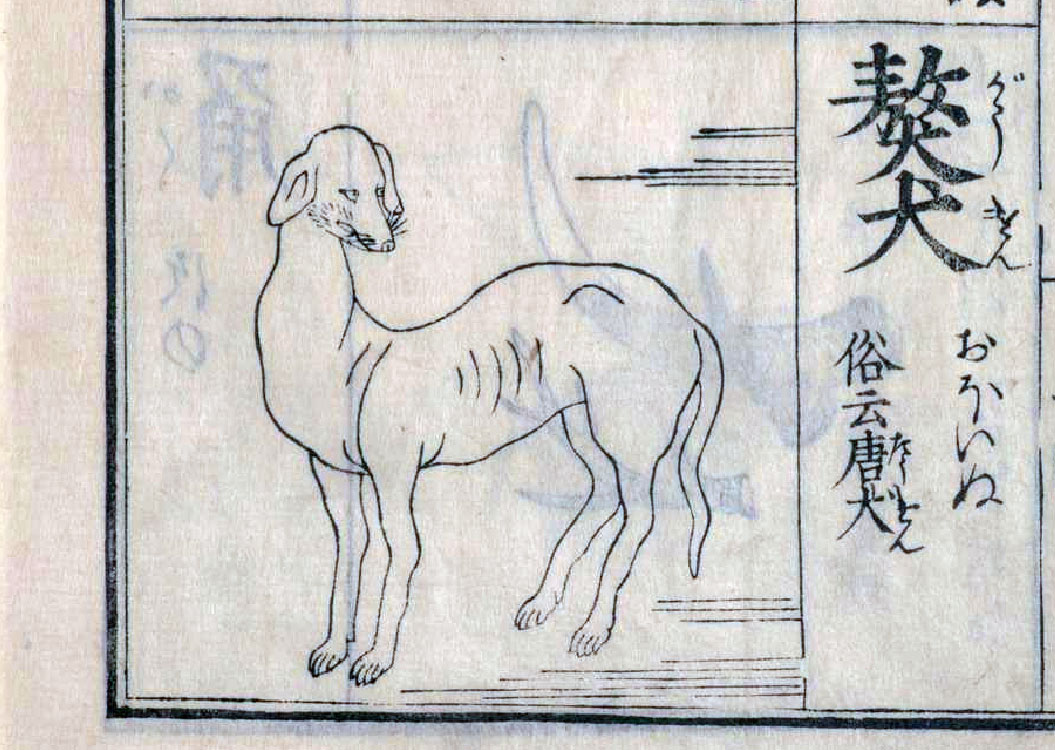 獒犬
がうけん
おほいぬ
俗云唐犬
たうけん